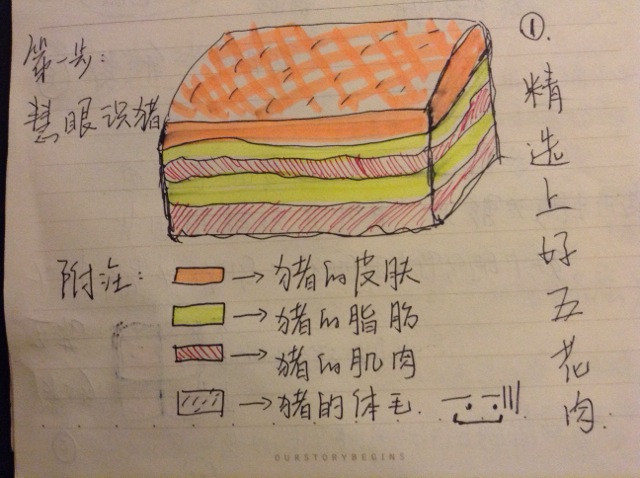 第一步:
慧眼识猪
①.
精选上好五花肉.
附注:
→猪的皮肤
→猪的脂肪
→猪的肌肉
→猪的体毛.
OURSTORYBEGINS